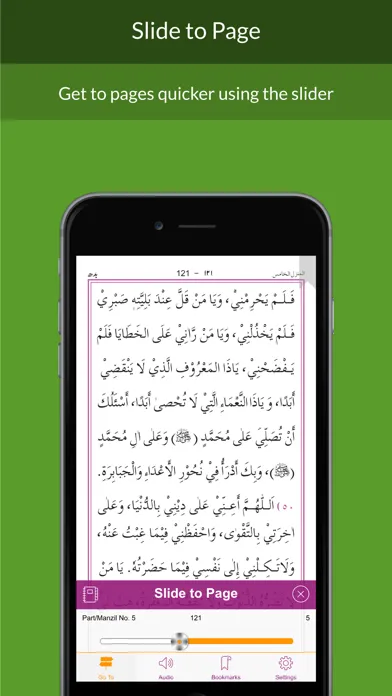 Slide to Page
Get to pages quicker using the slider
المنزل الخامس
١٢١ - 121
فَلَمْ يَحْرِمْنِيْ، وَيَا مَنْ قَلَّ عِنْدَ بَلِيَّتِهٖ صَبْرِيْ
فَلَمْ يَخْذُلْنِيْ، وَيَا مَنْ رَّانِيْ عَلَى الخَطَايَا فَلَمْ
يَفْضَحْنِيْ، يَاذَا المَعْرُوْفِ الَّذِيْ لَا يَنْقَضِيْ
أَبَدًا، وَ يَاذَا النَّعْمَاءِ الَّتِيْ لَا تُحْصىٰ أَبَدًا، أَسْئَلُكَ
أَنْ تُصَلِّيَ عَلى مُحَمَّدٍ (ﷺ) وَعَلى الِ مُحَمَّدٍ
(ﷺ)، وَبِكَ أَدْرَأُ فِيْ نُحُوْرِ الْأَعْدَاءِ وَالْجَبَابِرَةِ.
(٥٠) اَللّٰهُمَّ أَعِنِّيْ عَلى دِيْنِيْ بِالدُّنْيَا، وَعَلى
اخِرَتِيْ بِالتَّقْوى، وَاحْفَظْنِيْ فِيْمَا غِبْتُ عَنْهُ،
وَلَاتَكِلْنِيْ إِلى نَفْسِيْ فِيْمَا حَضَرْتُهُ. يَا مَنْ
Slide to Page
Part/Manzil No. 5 121 5
Go To Audio Bookmarks Settings